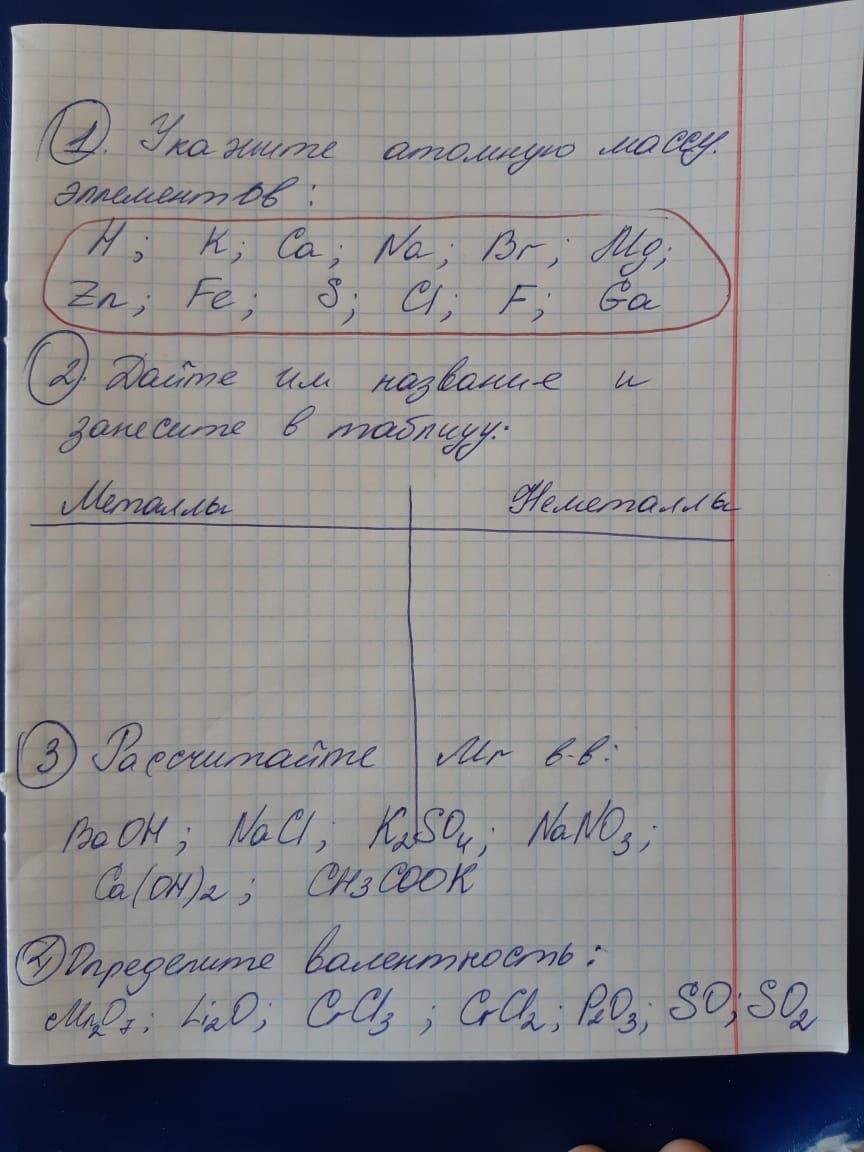 1. Укажите атомную массу.
эллементов:
H; K; Ca; Na; Br; Mg;
Zn; Fe; S; Cl; F; Ga
2. Дайте им название и
занесите в таблицу:
Металлы Неметаллы
3 Рассчитайте Mr в-в:
BaOH; NaCl; K₂SO₄; NaNO₃;
Ca(OH)₂; CH₃COOK
4) Определите валентность:
Mn₂O₇; Li₂O; CrCl₃; CrCl₂; P₂O₃; SO; SO₂